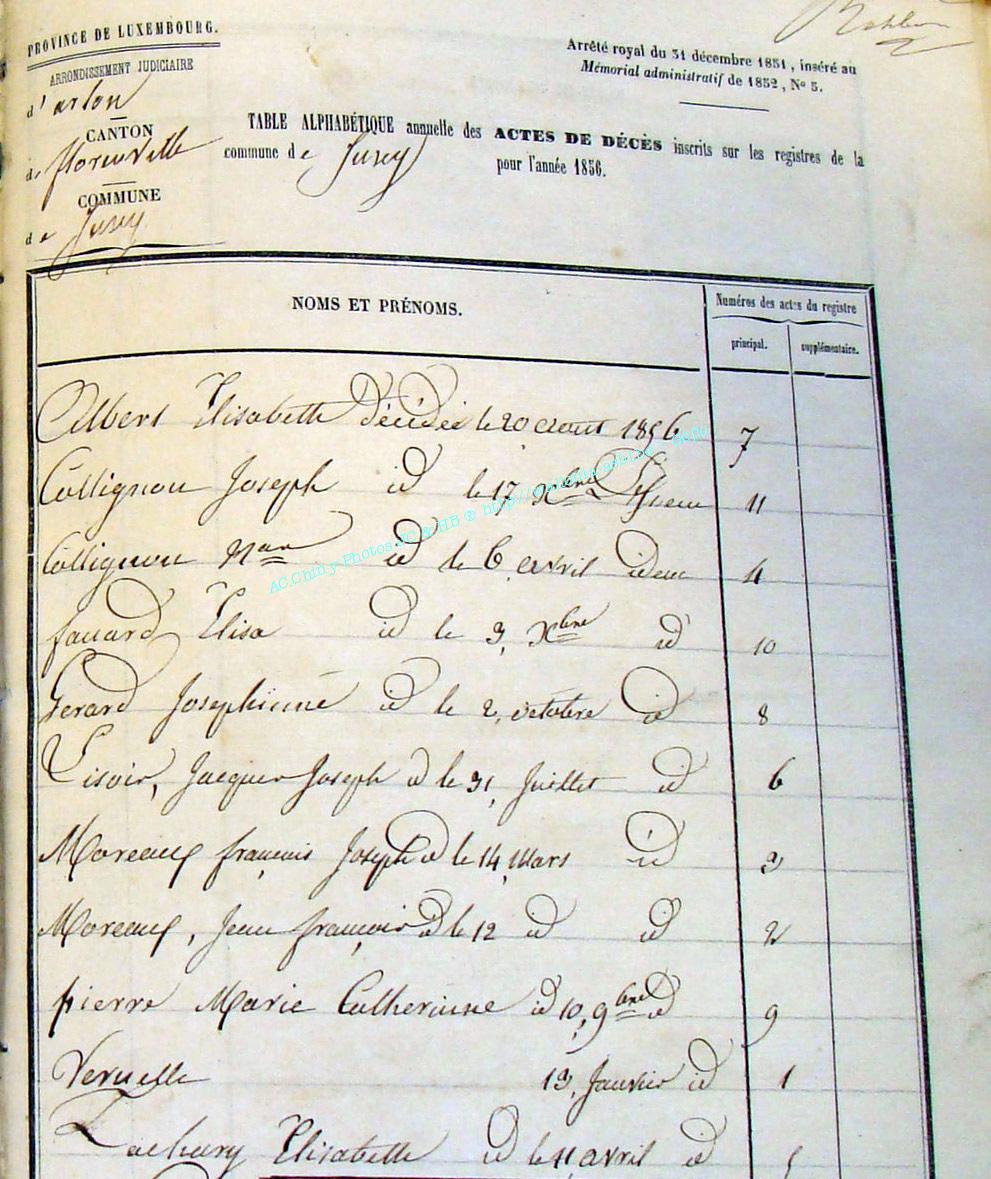 PROVINCE DE LUXEMBOURG.
ARRONDISSEMENT JUDICIAIRE
d'arlon
CANTON
de florenville
COMMUNE
de Jusey
Arrêté royal du 31 décembre 1851, inséré au
Mémorial administratif de 1852, No 5.
TABLE ALPHABÉTIQUE annuelle des ACTES DE DÉCÈS inscrits sur les registres de la
commune de Jusey pour l'année 1856.
NOMS ET PRÉNOMS.
Numéros des actes du registre
principal.
supplémentaire.
Albert Elisabette Décédée le 20 Aout 1856 7
Collignon Joseph id le 17 Xbre 11
Collignon id le 6, avril idem 4
fauard Elisa id le 3, Xbre id 10
Gerard Josephinne id le 2, octobre id 8
Lisoir, Jacques Joseph id le 31, Juillet id 6
Moreaux françois Joseph id le 14, Mars id 3
Moreaux, Jean françois id le 12 id id 2
pierre Marie Catherinne id 10, 9bre id 9
Veruelle 13, Janvier id 1
Zachary Elisabette id le 11 avril id 5
AC.Chiny Photos JC & HB ® http://